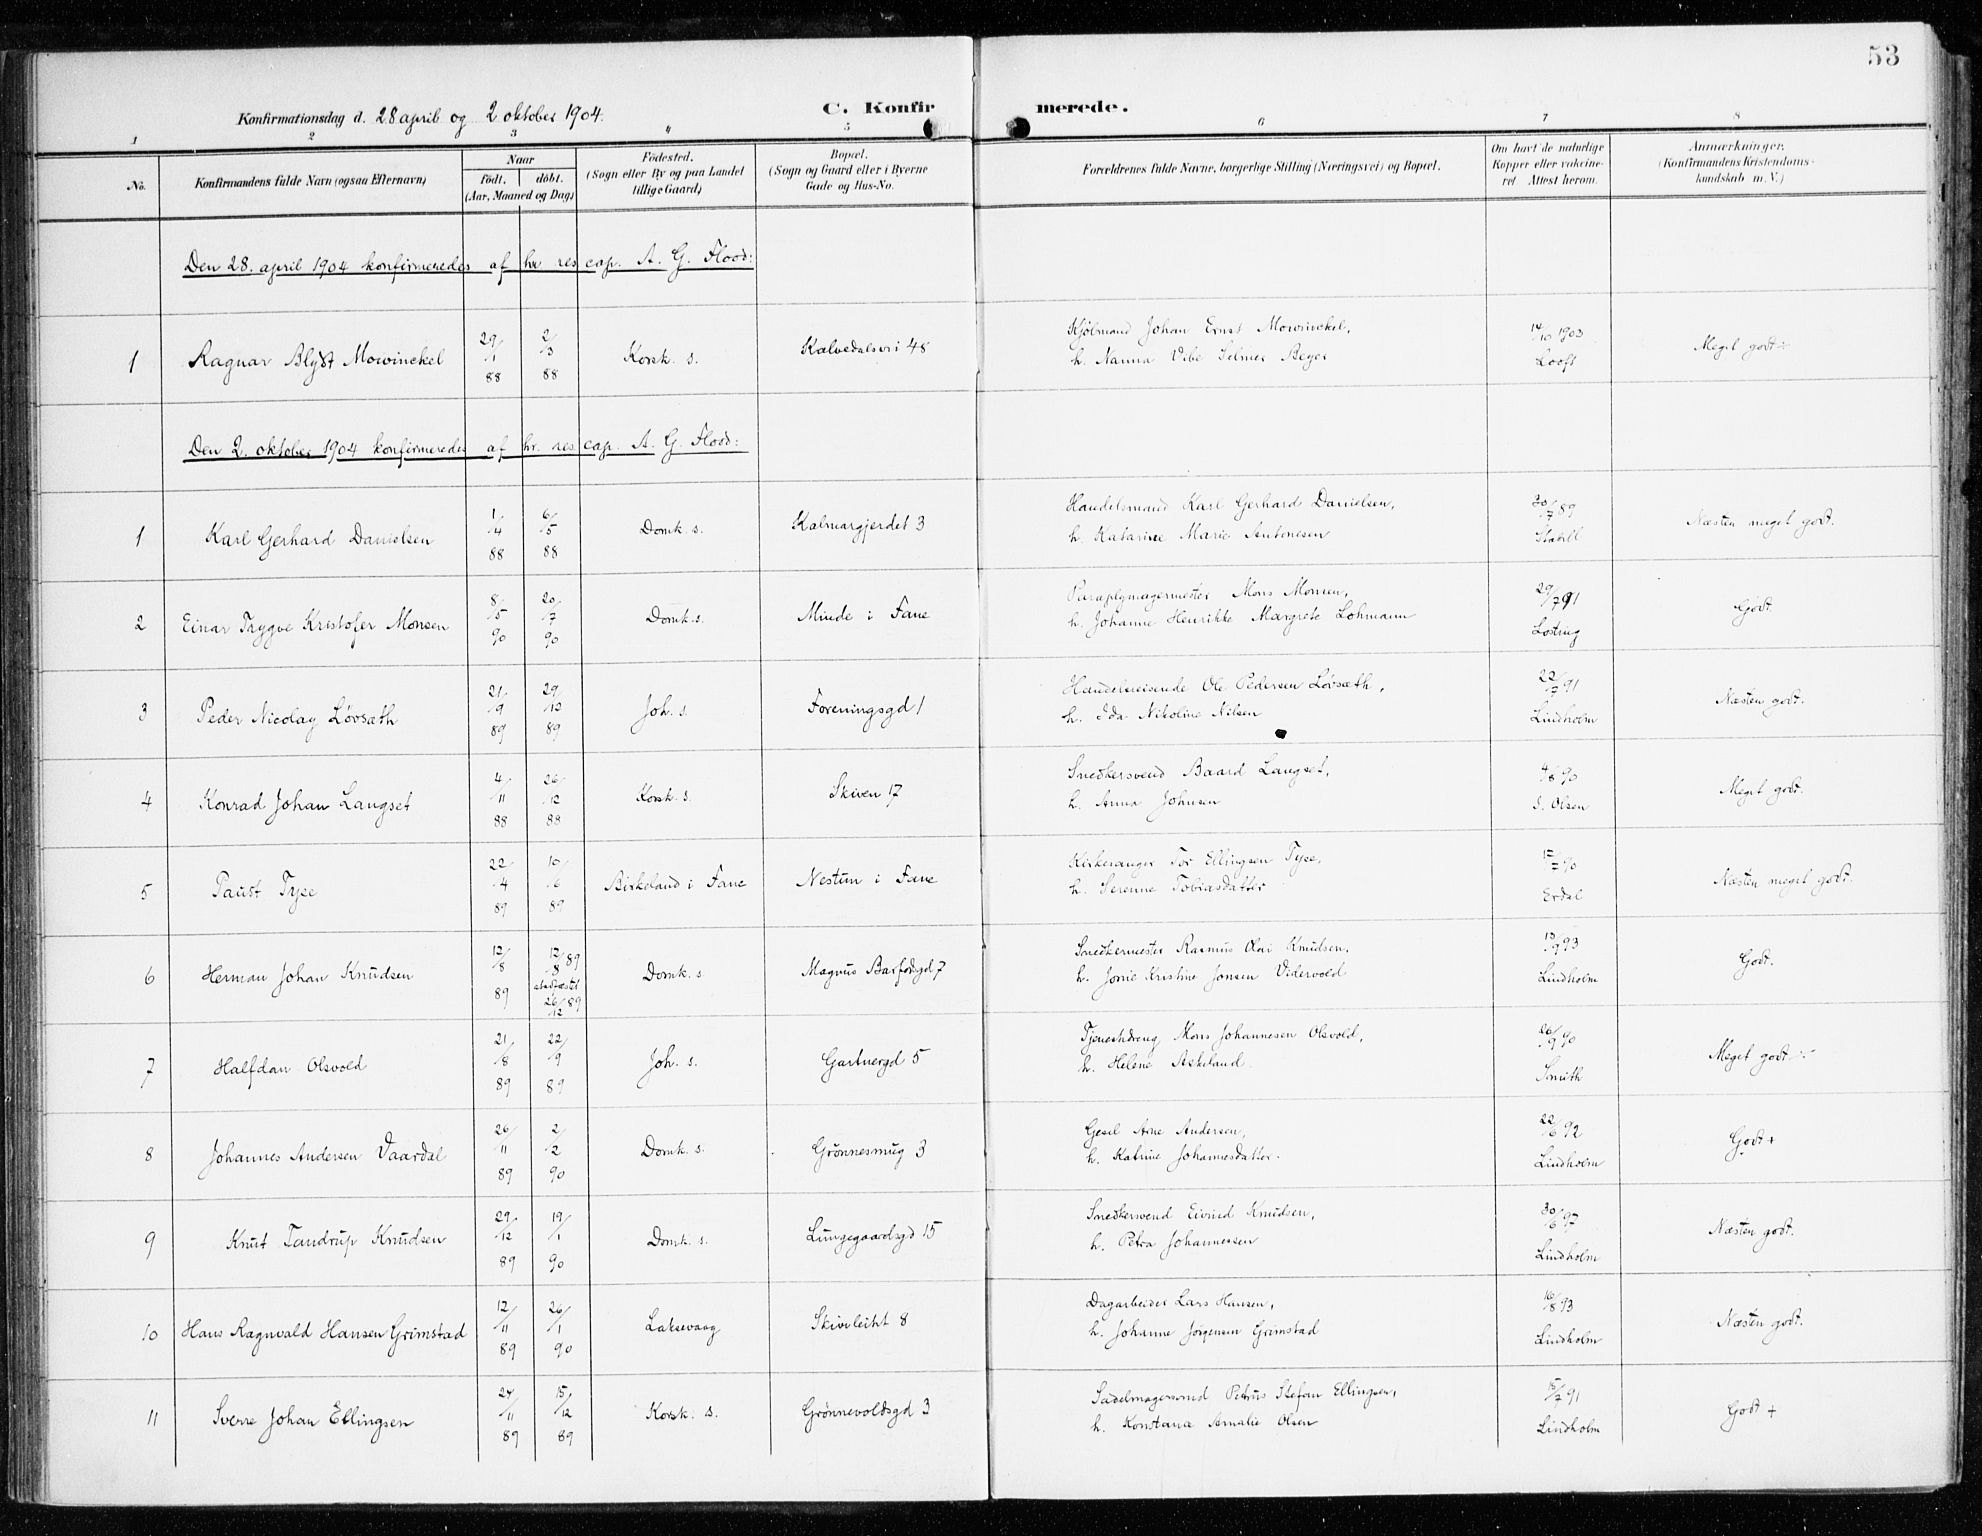 53
Konfirmationsdag d. 28 april og 2 oktober 1904.
C. Konfirmerede.
1 2 3 4 5 6 7 8
No.
Konfirmandens fulde Navn (ogsaa Efternavn)
Naar
födt. döbt.
(Aar, Maaned og Dag)
Födested.
(Sogn eller By og paa Landet
tillige Gaard)
Bopæl.
(Sogn og Gaard eller i Byerne
Gade og Hus-No.
Forældrenes fulde Navne, borgerlige Stilling (Næringsvei) og Bopæl.
Om havt de naturlige
Kopper eller vakcine-
ret Attest herom.
Anmærkninger.
(Konfirmandens Kristendoms-
kundskab m. V.)
Den 28. april 1904 konfirmeredes af hr res cap. A. G. Flood:
1 Ragnar Blydt Mowinckel 29/1 88 2/3 88 Korsk. s. Kalvedalsvei 48
Kjøbmand Johan Ernst Mowinckel,
h. Nanna Vibe Selmer Beyer
14/10 1903
Looft
Meget godt ÷
Den 2. oktober 1904 konfirmeredes af hr. res cap. A. G. Flood:
1 Karl Gerhard Danielsen 1/4 88 6/5 88 Domk. s. Kalmargjerdet 3
Handelsmand Karl Gerhard Danielsen,
h. Katarine Marie Antonesen
30/7 89
Næsten meget godt.
2 Einar Trygve Kristofer Monsen 8/5 90 20/7 90 Domk. s. Minde i Fane
Paraplymagermester Mons Monsen,
h. Johanne Henrikke Margrete Lohmann
29/7 91
Godt.
3 Peder Nicolay Lövsæth 21/9 89 29/10 89 Joh. s. Foreningsgd 1
Handelsreisende Ole Pedersen Lövsæth,
h. Ida Nikoline Nilsen
22/7 91
Lindholm
Næsten godt.
4 Konrad Johan Langset 4/11 88 26/12 88 Korsk. s. Skiven 17
Snedkersvend Baard Langset,
h. Anna Johnsen
4/8 90
Olsen
Meget godt.
5 Taust Tyse 22/4 89 10/6 89 Birkeland i Fane Nestun i Fane
Kirkesanger Tor Ellingsen Tyse,
h. Serenne Tobiasdatter
90
Erdal
Næsten meget godt.
6 Herman Johan Knudsen 12/8 89 12/8 89 stadfæstet 26/12 89 Domk. s. Magnus Barfodsgd 7
Snedkermester Rasmus Olai Knudsen,
h. Jonie Kristine Jonsen Vidervold
93
Lindholm
Godt.
7 Halfdan Olsvold 21/8 89 22/9 89 Joh. s. Gartnergd 5
Tjenestdreng Mons Johannesen Olsvold,
h. Helene Askeland
26/9 90
Smith
Meget godt ÷
8 Johannes Andersen Vaardal 26/11 89 2/2 90 Domk. s. Grönnesmug 3
Gesel Arne Andersen,
h. Katrine Johannesdatter.
22/6 92
Lindholm
Godt +
9 Knut Tandrup Knudsen 29/12 89 19/1 90 Domk. s. Lungegaardsgd 15
Snedkersvend Eivind Knudsen,
h. Petra Johannessen
30/6 97
Lindholm
Næsten godt.
10 Hans Ragnvald Hansen Grimstad 12/11 89 26/1 90 Laksevaag Skiveleiht 8
Dagarbeider Lars Hansen,
h. Johanne Jörgensen Grimstad
16/8 93
Lindholm
Næsten godt.
11 Sverre Johan Ellingsen 24/11 89 15/12 89 Korsk. s. Grönnevoldsgd 3
Sadelmagersvend Petrus Stefan Ellingsen,
h. Konstance Amalie Olsen
15/7 91
Lindholm
Godt +